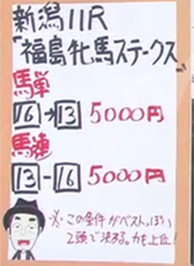 新潟11R
"福島牝馬ステークス"
馬単
16→13 5000円
馬連
13-16 5000円
※この条件がベストっぽい
2頭で決まる。力も上位!